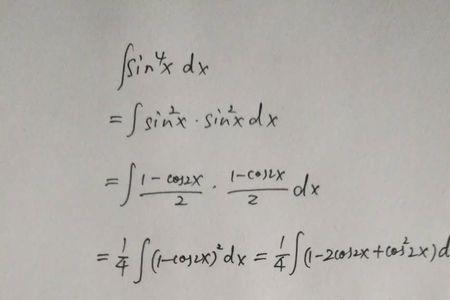 ∫sin⁴x dx
= ∫sin²x · sin²x dx
= ∫ (1 - cos2x)/2 · (1 - cos2x)/2 dx
= 1/4 ∫(1-cos2x)² dx = 1/4 ∫(1-2cos2x+cos²2x)d